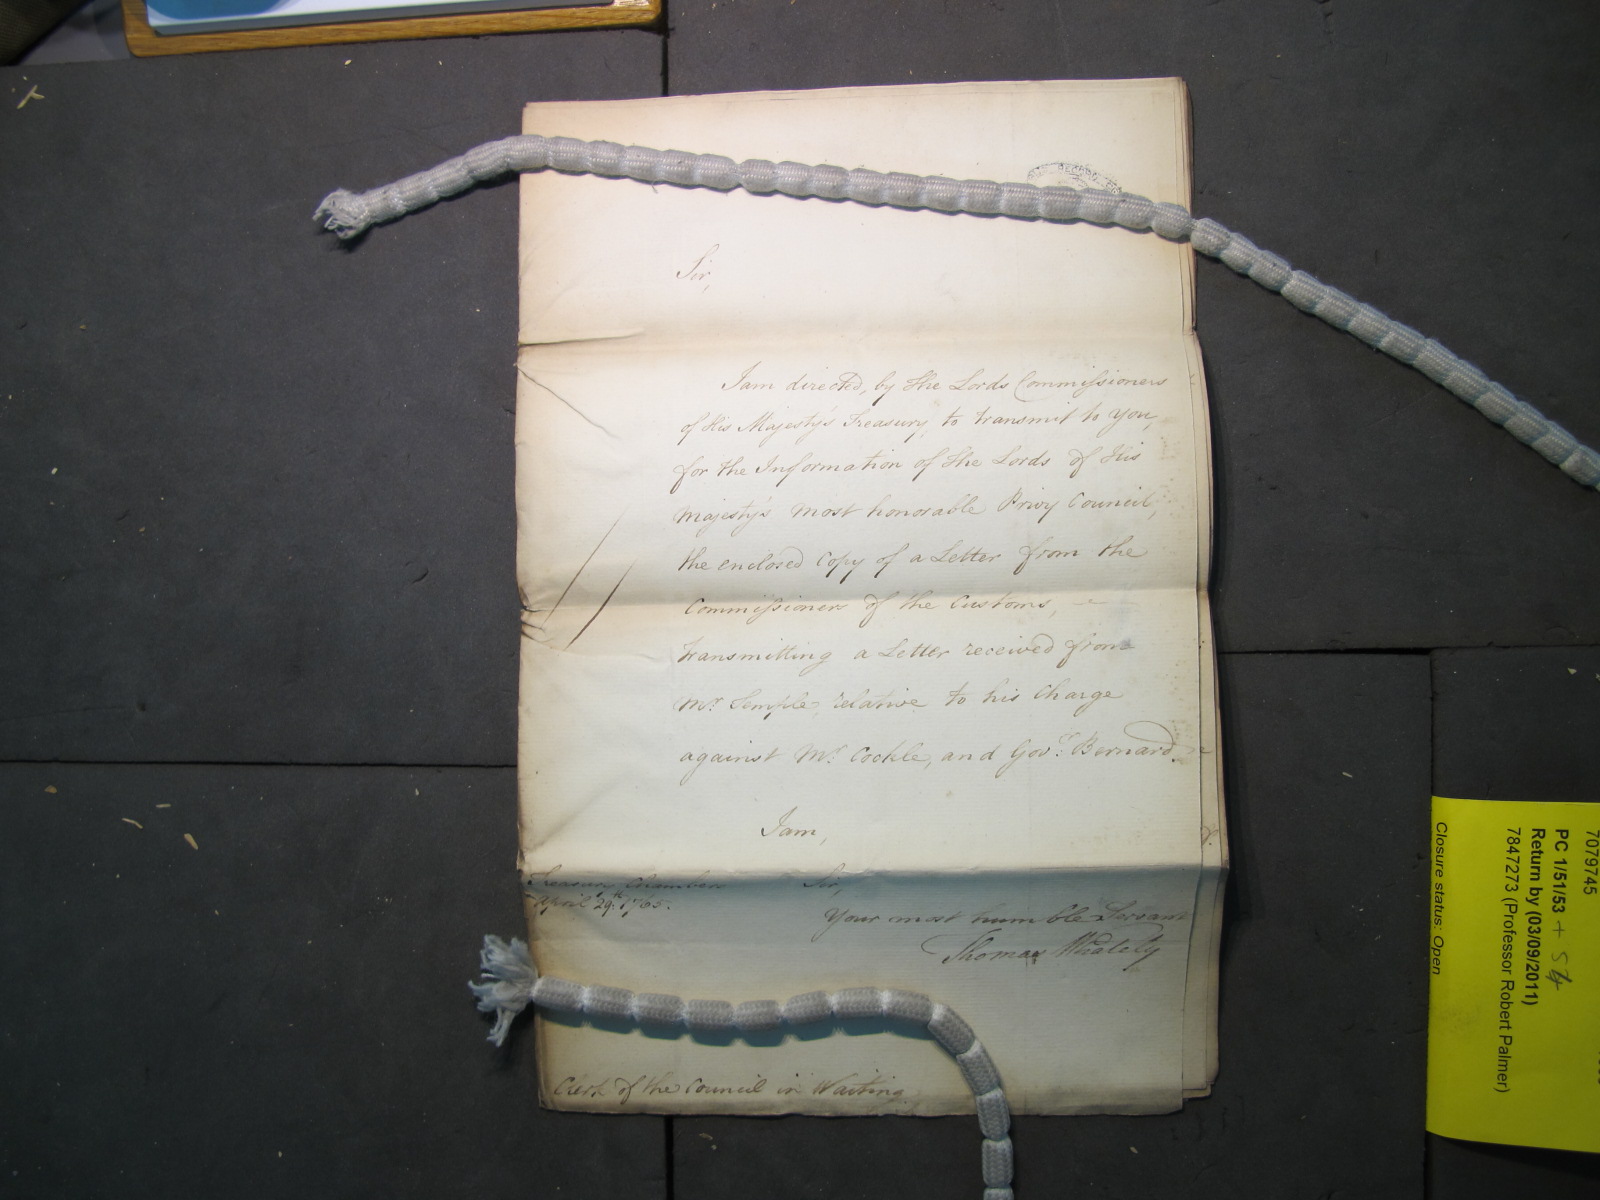 RECORD
Sir,
I am directed, by the Lords Commissioners
of His Majesty's Treasury, to transmit to you,
for the Information of the Lords of His
Majesty's most honorable Privy Council,
the enclosed Copy of a Letter from the
Commissioners of the Customs,
transmitting a Letter received from
Mr. Temple, relative to his Charge
against Mr. Cockle, and Govr. Bernard.
I am,
Treasury Chambers
April 29th. 1765.
Sir,
Your most humble Servant
Thomas Whately
Clerk of the Council in Waiting
7079745
PC 1/51/53 + 54
Return by (03/09/2011)
7847273 (Professor Robert Palmer)
Closure status: Open